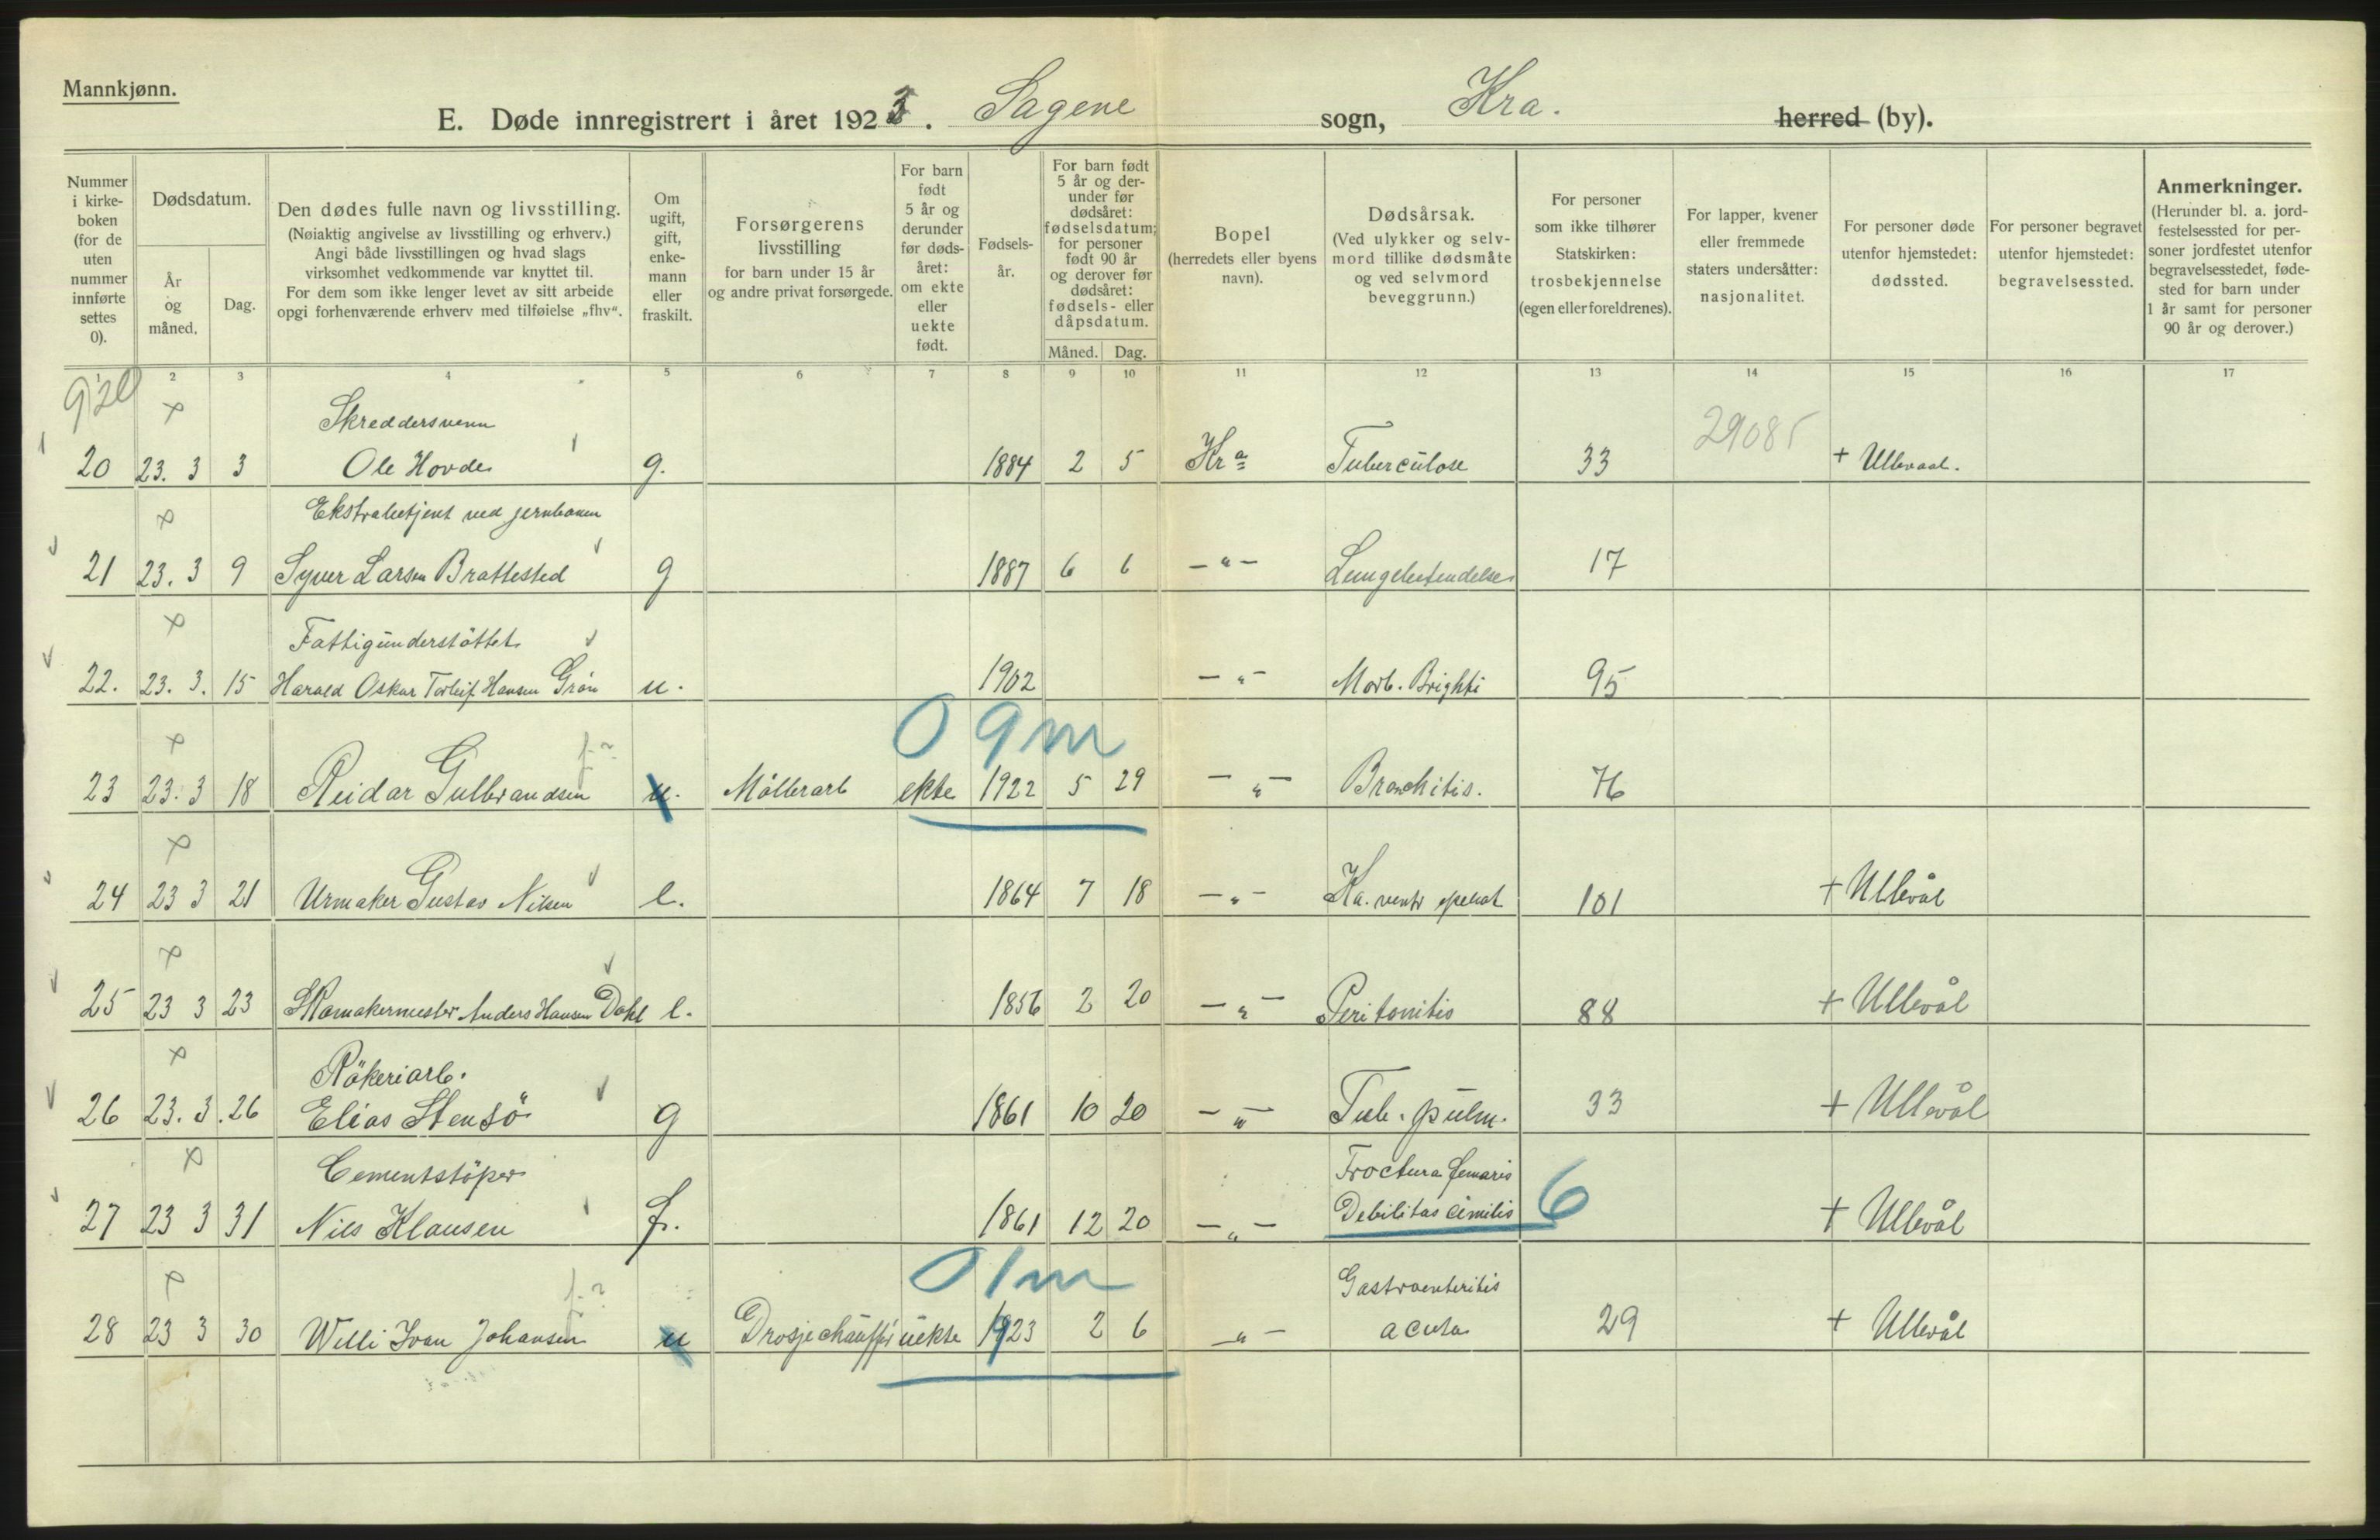 Mannkjønn.
E. Døde innregistrert i året 1923. Sagene sogn, Kra. herred (by).
Nummer i kirkeboken (for de uten nummer innførte settes 0).
Dødsdatum.
År og måned.
Dag.
Den dødes fulle navn og livsstilling.
(Nøiaktig angivelse av livsstilling og erhverv.)
Angi både livsstillingen og hvad slags
virksomhet vedkommende var knyttet til.
For dem som ikke lenger levet av sitt arbeide
opgi forhenværende erhverv med tilføielse „fhv“.
Om ugift, gift, enkemann eller fraskilt.
Forsørgerens livsstilling
for barn under 15 år
og andre privat forsørgede.
For barn født 5 år og derunder før dødsåret: om ekte eller uekte født.
Fødselsår.
For barn født 5 år og derunder før dødsåret: fødselsdatum; for personer født 90 år og derover før dødsåret: fødsels- eller dåpsdatum.
Måned. Dag.
Bopel
(herredets eller byens navn).
Dødsårsak.
(Ved ulykker og selvmord tillike dødsmåte og ved selvmord beveggrunn.)
For personer som ikke tilhører Statskirken: trosbekjennelse (egen eller foreldrenes).
For lapper, kvener eller fremmede staters undersåtter: nasjonalitet.
For personer døde utenfor hjemstedet: dødssted.
For personer begravet utenfor hjemstedet: begravelsessted.
Anmerkninger.
(Herunder bl. a. jordfestelsessted for personer jordfestet utenfor begravelsesstedet, fødested for barn under 1 år samt for personer 90 år og derover.)
1 2 3 4 5 6 7 8 9 10 11 12 13 14 15 16 17
Skreddersvenn
20 23. 3 3 Ole Hovde g. 1884 2 5 Kra Tuberculose 33 29085 + Ullevaal.
Ekstrabetjent ved jernbanen
21 23. 3 9 Syver Larsen Brattested g 1887 6 6 —"— Lungebetendelse 17
Fattigunderstöttet
22. 23. 3. 15 Harald Oskar Torleif Hansen Grön u. 1902 —"— Morb. Brighti 95
0 9 m
23 23. 3 18 Reidar Gulbrandsen u. Möllerarb ekte 1922 5 29 —"— Bronchitis. 76
24 23 3 21 Urmaker Gustav Nilsen e. 1864 7 18 —"— Ka. ventr operat 101 + Ullevål
25 23 3 23 Skomakermester Anders Hansen Dahl e. 1856 2 20 —"— Peritonitis 88 + Ullevål
Rökeriarb.
26 23. 3. 26 Elias Stensö g 1861 10 20 —"— Tub. pulm. 33 + Ullevål
Cementstöper Fractura femoris
27 23 3 31 Nils Klausen f. 1861 12 20 —"— Debilitas cinilis 6 + Ullevål
0 1 m Gastroenteritis
28 23 3 30 Willi Ivan Johansen u Drosjechaufför uekte 1923 2 6 —"— acuta 29 + Ullevål